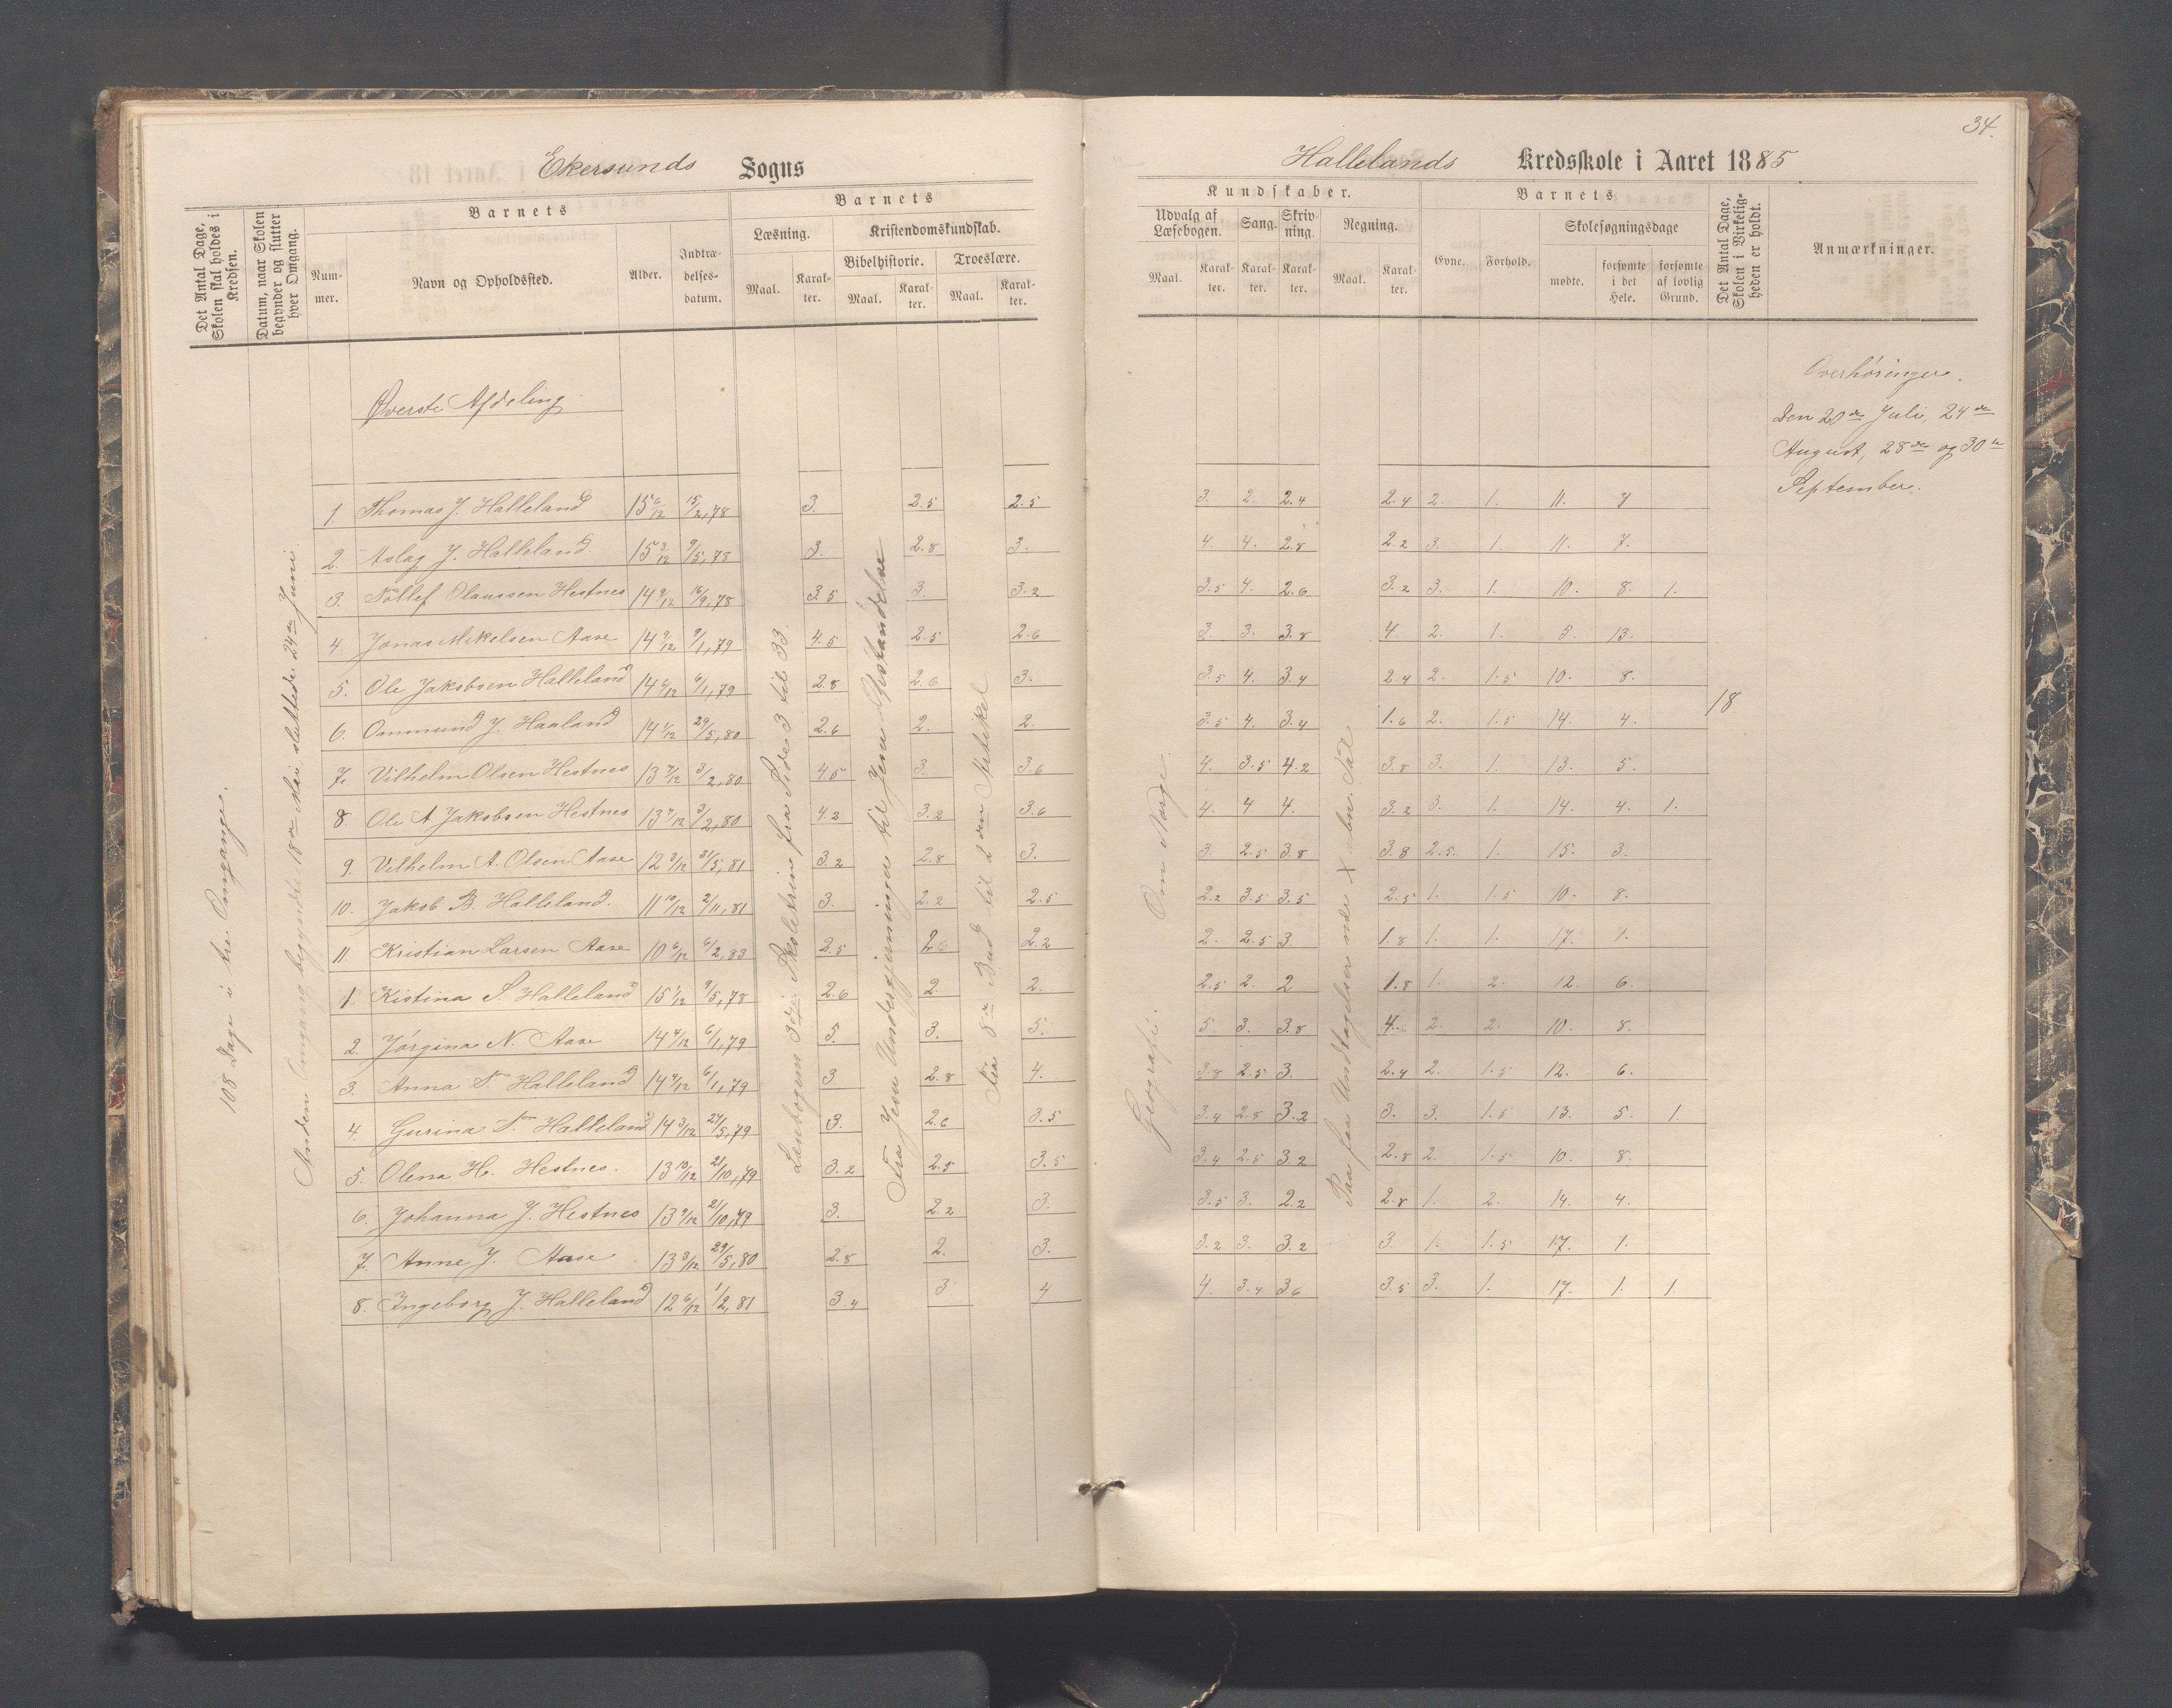 34.
Ekersunds Sogns
Hallelands Kredsskole i Aaret 1885
Det Antal Dage, Skolen skal holdes i Kredsen.
Datum, naar Skolen begynder og slutter hver Omgang.
Barnets
Nummer.
Navn og Opholdssted.
Alder.
Indtrædelsesdatum.
Barnets
Læsning.
Maal.
Karakter.
Kristendomskundskab.
Bibelhistorie.
Maal.
Karakter.
Troeslære.
Maal.
Karakter.
Kundskaber.
Udvalg af Læsebogen.
Maal.
Karakter.
Sang.
Karakter.
Skrivning.
Karakter.
Regning.
Maal.
Karakter.
Barnets
Evne.
Forhold.
Skolesøgningsdage
mødte.
forsømte i det Hele.
forsømte af lovlig Grund.
Det Antal Dage, Skolen i Virkeligheden er holdt.
Anmærkninger.
108 Dage i tre Omgange.
Anden Omgang begyndte 18de Mai sluttede 24de Juni.
Øverste Afdeling
Læsebogens 3die Skoletrin fra Side 3 til 33.
Fra Jesu Undergjerninger til Jesu Opstandelse
Fra 8de Bud til 2den Artikel
Geografi. Om Norge.
Paa faa Undtagelser nær X ben. Tal
18.
Overhøringer.
Den 20de Juli, 24de
August, 28de og 30te
September.
1 Thomas J. Halleland 15 6/12 15/2,78 3. 2.5 2.5 3. 2. 2.4 2.4 2. 1. 11. 7
2. Aslag J. Halleland 15 3/12 9/5,78 3. 2.8 3. 4. 4. 2.8 2.2 3. 1. 11. 7.
3. Tollef Olaussen Hestnes 14 9/12 16/9,78 3.5 3. 3.2 3.5 4. 2.6 3.2 3. 1. 10. 8. 1.
4. Jonas Mikelsen Aase 14 9/12 9/1,79 4.5 2.5 2.6 3. 3. 3.8 4. 2. 1. 5. 13.
5. Ole Jakobsen Halleland 14 6/12 6/1,79 2.8 2.6 3. 3.5 4. 3.4 2.4 2. 1.5 10. 8.
6. Ommund J. Haaland 14 1/12 29/5,80 2.6 2. 2. 3.5 4. 3.4 1.6 2. 1.5 14. 4.
7. Vilhelm Olsen Hestnes 13 7/12 3/2,80 4.5 3. 3.6 4. 3.5 4.2 3.8 3. 1. 13. 5.
8. Ole A Jakobsen Hestnes 13 7/12 3/2,80 4.2 3.2 3.6 4. 4. 4. 3.2 3. 1. 14. 4. 1.
9. Vilhelm A. Olsen Aase 12 3/12 31/5,81 3.2 2.8 3. 3. 2.5 3.8 3.8 2.5. 1. 15. 3.
10. Jakob B. Halleland. 11 10/12 2/11,81 3. 2.2 2.5 2.2 3.5 3.5 2.5 1. 1.5 10. 8.
11. Kristian Larsen Aase 10 6/12 6/2,83 2.5 2.6 2.2 2. 2.5 3. 1.8 1. 1. 17. 1.
1. Kistina S. Halleland 15 1/12 9/5,78 2.6 2. 2. 2.5 2. 2 1.8 1. 2. 12. 6.
2. Jørgina N. Aase 14 4/12 6/1,79 5. 3. 5. 5. 3. 3.8 4. 2. 2. 10. 8.
3. Anna T. Halleland 14 4/12 6/1,79 3. 2.8 4. 3.8 2.5 3. 2.4 2. 1.5 12. 6.
4. Gurina T. Halleland 14 3/12 27/5,79 3. 2.6 3.5 3.4 2.8 3.2 3. 3. 1.5 13. 5. 1.
5. Olena H. Hestnes. 13 10/12 21/10,79 3.2 2.5 3.5 3.4 2.5 3.2 2.8 2. 1.5 10. 8.
6. Johanna J. Hestnes 13 9/12 21/10,79 3. 2.2 3. 3.5 3. 2.2 2.8 1. 2. 14. 4.
7. Anne J. Aase 13 3/12 29/5,80 2.8 2. 3. 3.2 3. 3.2 3. 1. 1.5 17. 1.
8. Ingeborg J. Halleland 12 6/12 1/2,81 3.4 3 4 4. 3.4 3.6 3.5 3. 1. 17. 1. 1.